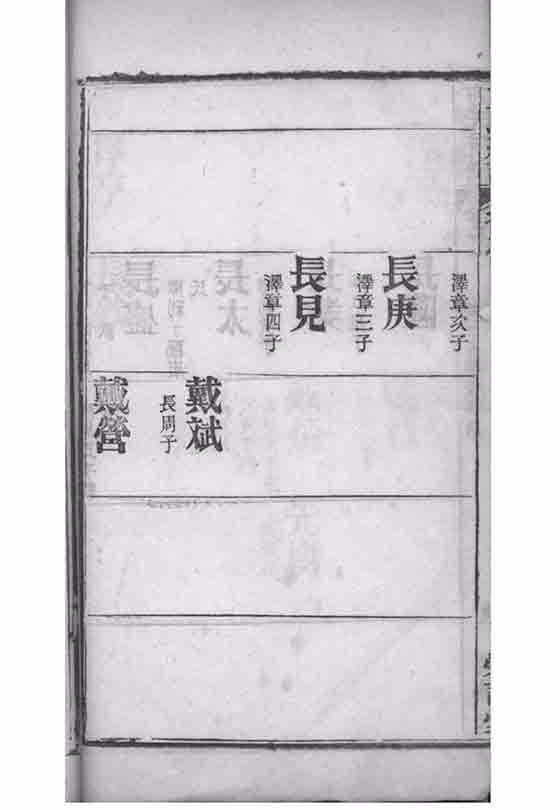 澤章次子
長庚
澤章三子
長見
澤章四子
戴斌
長周子
戴營